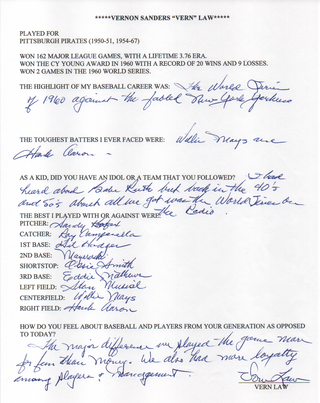 *****VERNON SANDERS "VERN" LAW*****
PLAYED FOR
PITTSBURGH PIRATES (1950-51, 1954-67)
WON 162 MAJOR LEAGUE GAMES, WITH A LIFETIME 3.76 ERA.
WON THE CY YOUNG AWARD IN 1960 WITH A RECORD OF 20 WINS AND 9 LOSSES.
WON 2 GAMES IN THE 1960 WORLD SERIES.
THE HIGHLIGHT OF MY BASEBALL CAREER WAS: The World Series
of 1960 against the fabled New York Yankees
THE TOUGHEST BATTERS I EVER FACED WERE: Willie Mays and
Hank Aaron.
AS A KID, DID YOU HAVE AN IDOL OR A TEAM THAT YOU FOLLOWED? I had
heard about Babe Ruth but back in the 40's
and 50's about all we got was the World Series on
the Radio.
THE BEST I PLAYED WITH OR AGAINST WERE:
PITCHER: Sandy Kofax
CATCHER: Roy Campanella
1ST BASE: Gil Hodges
2ND BASE: Mazeroski
SHORTSTOP: Ozzie Smith
3RD BASE: Eddie Mathews
LEFT FIELD: Stan Musical
CENTERFIELD: Willie Mays
RIGHT FIELD: Hank Aaron
HOW DO YOU FEEL ABOUT BASEBALL AND PLAYERS FROM YOUR GENERATION AS OPPOSED
TO TODAY?
The major difference we played the game more
for fun than money. We also had more loyalty
among players & management.
Vern Law
VERN LAW